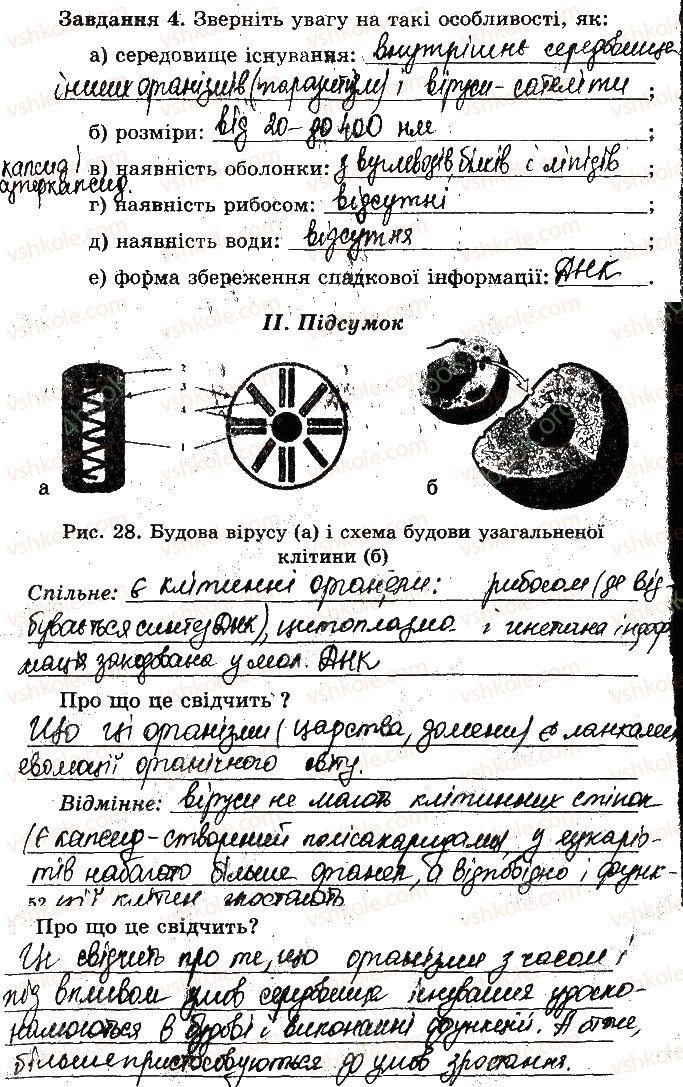 Завдання 4. Зверніть увагу на такі особливості, як:
а) середовище існування: внутрішнь середовище
інших організмів (паразитизм) і віруси-сателіти ;
б) розміри: від 20-до 400 нм ;
капсид і
суперкапсид.
в) наявність оболонки: з вуглеводів, білків і ліпідів ;
г) наявність рибосом: відсутні ;
д) наявність води: відсутня ;
е) форма збереження спадкової інформації: ДНК .
II. Підсумок
2
3
4
1
а
б
Рис. 28. Будова вірусу (а) і схема будови узагальненої
клітини (б)
Спільне: є клітинні органели: рибосом (де від-
бувається синтез ДНК), цитоплазма і генетична інфор
мація закодована у мол. ДНК
Про що це свідчить ?
Що ці організми (царства, домени) є ланками
еволюції органічного світу.
Відмінне: віруси не мають клітинних стінок
(є капсид-створений полісахаридами, у еукаріо-
тів набагато більше органел, а відповідно і функ-
52 ції клітин зростають
Про що це свідчить?
Це свідчить про те, що організми з часом і
під впливом умов середовища існування удоско-
налюються в будові і виконанні функцій. А отже,
більше пристосовуються до умов зростання.
vshkole.com